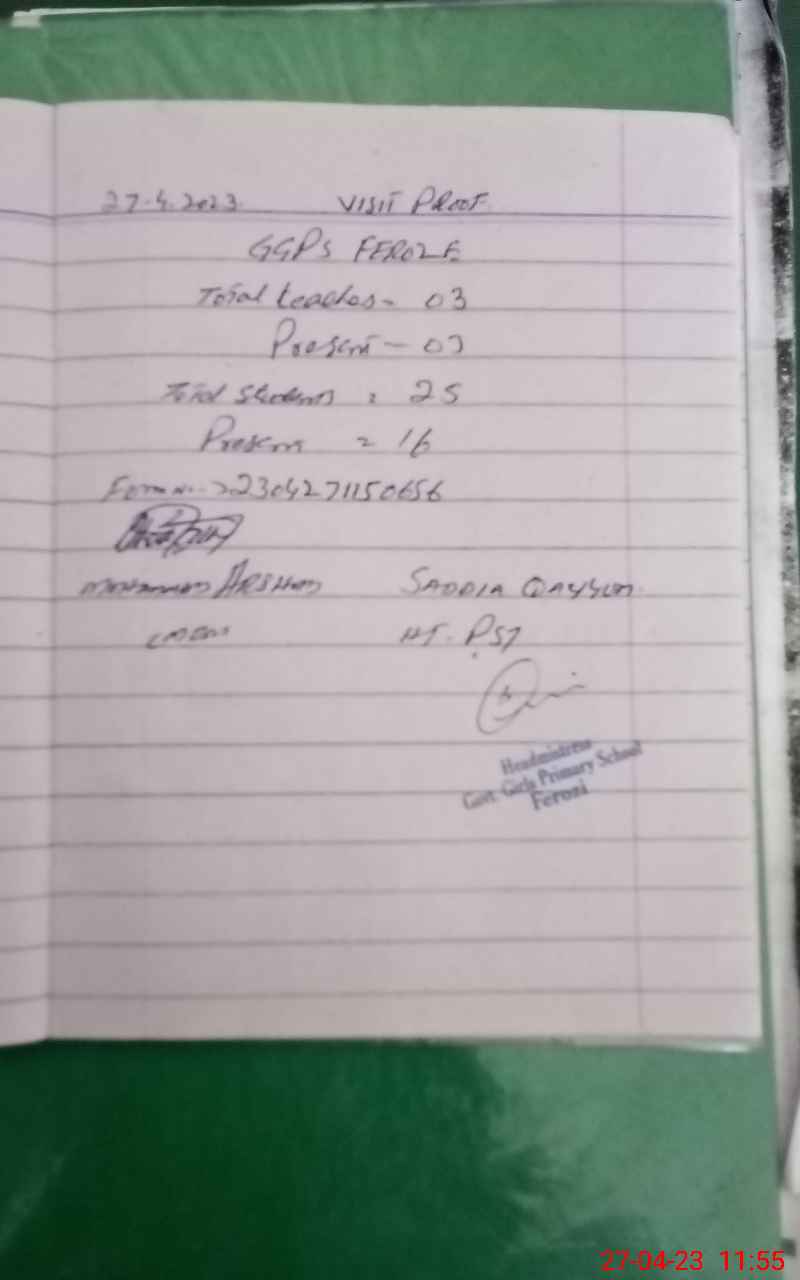 27.4.2023 VISIT PROOF
GGPS FEROZE
Total teaches = 03
Present = 03
Total Students = 25
Present = 16
Form No -> 2304271150656
Mohammad ARSHAD SADDIA QAYYUM
HT. PST
Headmistress
Govt. Girls Primary School
Ferozi
27-04-23 11:55